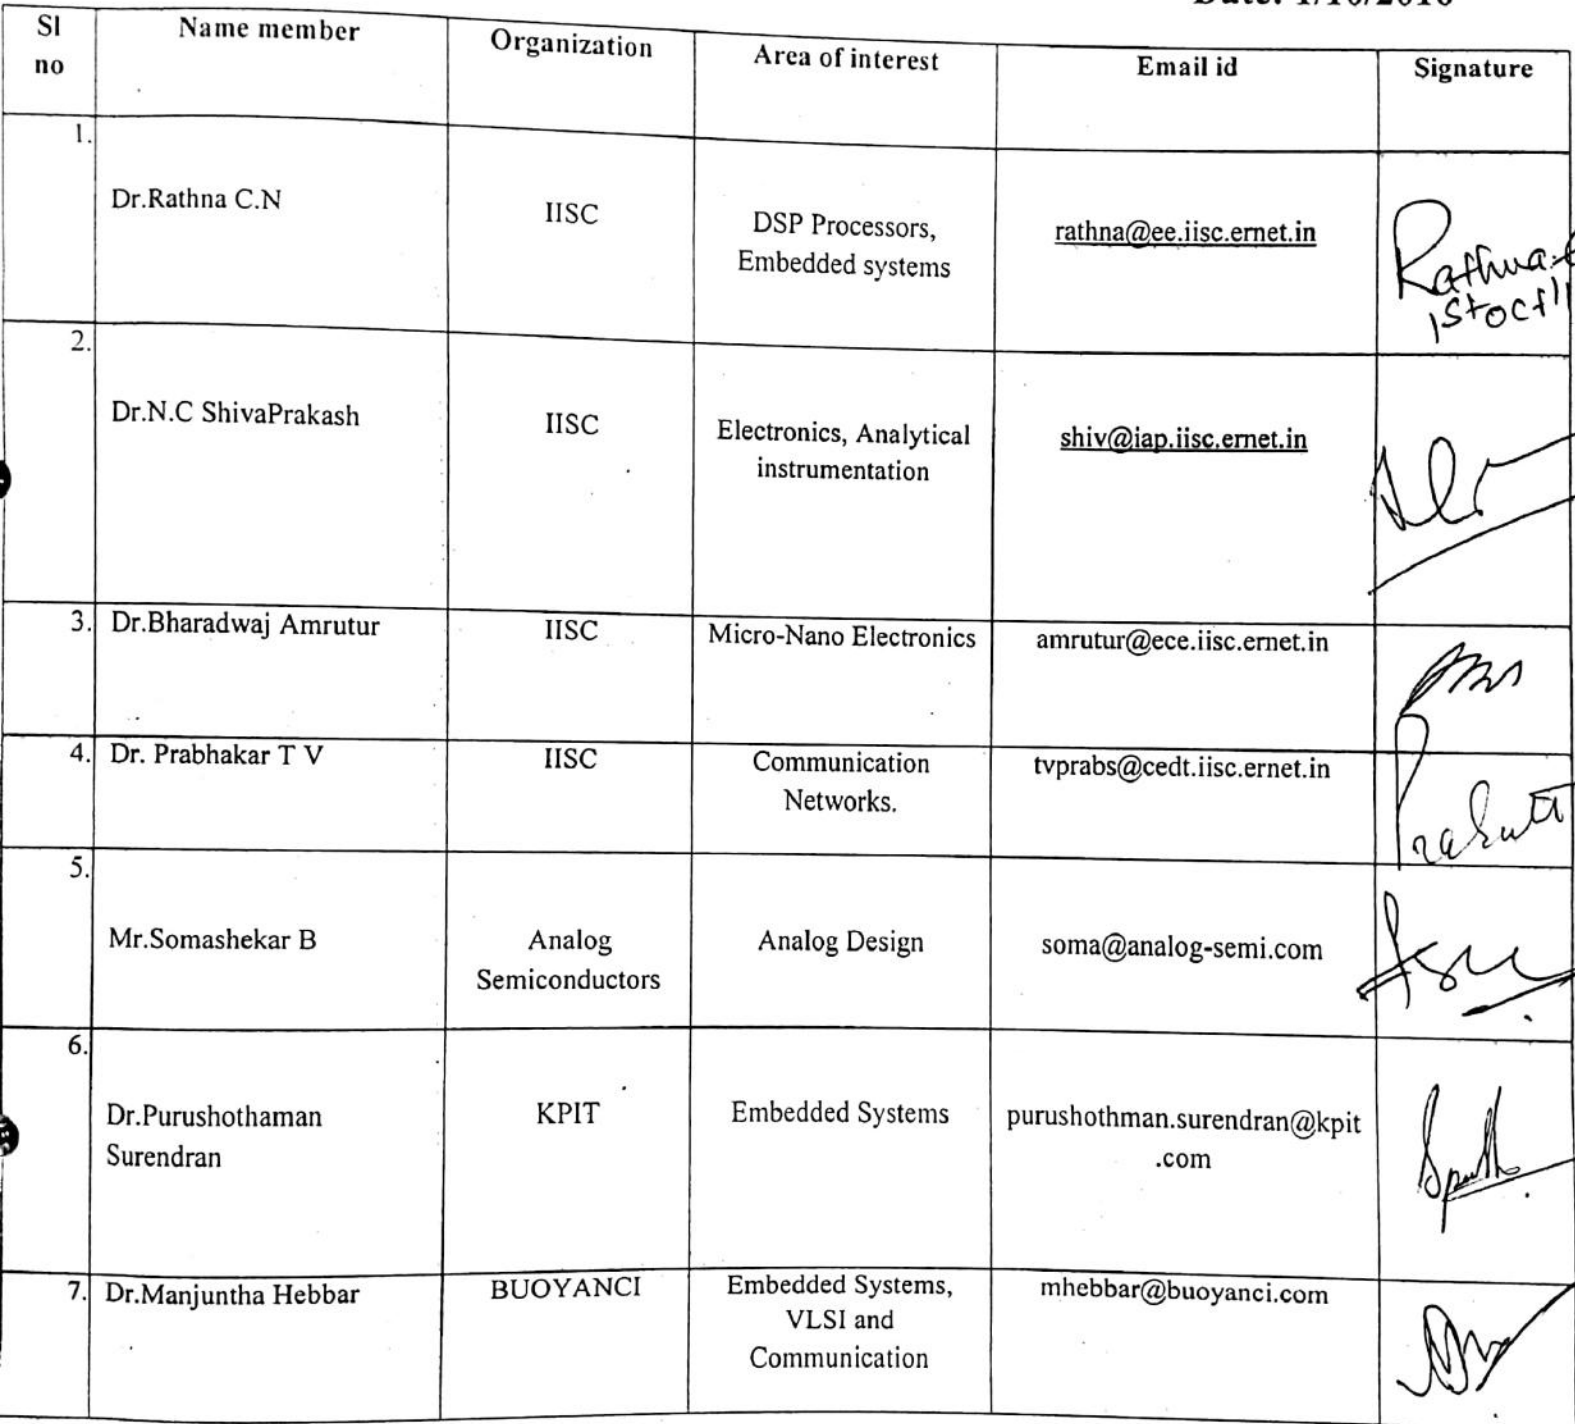 Date: 1/10/2016
Sl no Name member Organization Area of interest Email id Signature
1. Dr.Rathna C.N IISC DSP Processors, Embedded systems rathna@ee.iisc.ernet.in Rathna.
1st oct'1
2. Dr.N.C ShivaPrakash IISC Electronics, Analytical instrumentation shiv@iap.iisc.ernet.in
3. Dr.Bharadwaj Amrutur IISC Micro-Nano Electronics amrutur@ece.iisc.ernet.in
4. Dr. Prabhakar T V IISC Communication Networks. tvprabs@cedt.iisc.ernet.in
5. Mr.Somashekar B Analog Semiconductors Analog Design soma@analog-semi.com
6. Dr.Purushothaman Surendran KPIT Embedded Systems purushothman.surendran@kpit.com
7. Dr.Manjuntha Hebbar BUOYANCI Embedded Systems, VLSI and Communication mhebbar@buoyanci.com